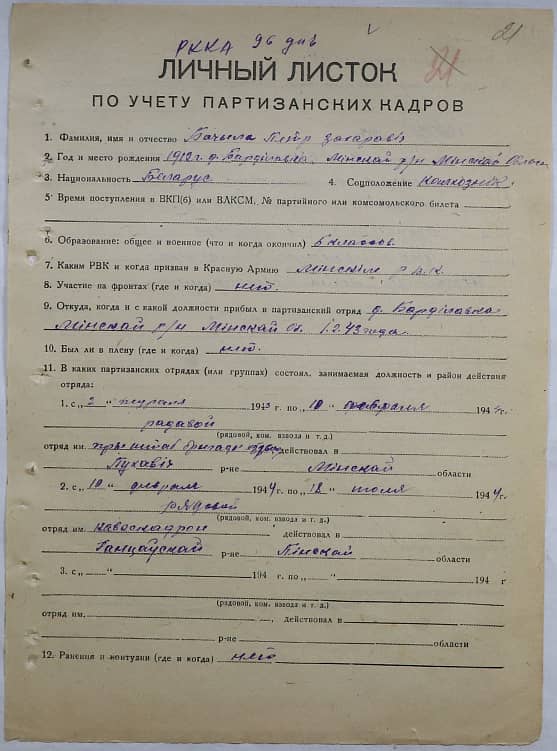 РККА 96 див
21
21
ЛИЧНЫЙ ЛИСТОК
ПО УЧЕТУ ПАРТИЗАНСКИХ КАДРОВ
1. Фамилия, имя и отчество Бачыла Пётр Захаравіч
2. Год и место рождения 1912 г. д. Барділовка Мінскай р/н Мінскай Обласі
3. Национальность Беларус 4. Соцположение Колхозник
5. Время поступления в ВКП(б) или ВЛКСМ, № партийного или комсомольского билета
6. Образование: общее и военное (что и когда окончил) 6 классов
7. Каким РВК и когда призван в Красную Армию Мінскім Р.В.К.
8. Участие на фронтах (где и когда) нет.
9. Откуда, когда и с какой должности прибыл в партизанский отряд д. Барділовка
Мінскай р/н Мінскай Об. 1943 года.
10. Был ли в плену (где и когда) нет.
11. В каких партизанских отрядах (или группах) состоял, занимаемая должность и район действия
отряда:
1. с „2“ 1943 г. по „10“ февраля 194 г.
радавой
(рядовой, ком. взвода и т. д.)
отряд им. пры штаб брігаде действовал в
Пухавіч р-не Мінскай области
2. с „10“ февраля 1944 г. по „12“ июля 1944 г.
рядовой
(рядовой, ком. взвода и т. д.)
отряд им. кавэскадрон действовал в
Ганцаўскай р-не Пінскай области
3. с „ “ 194 г. по „ “ 194 г
(рядовой, ком. взвода и т. д.)
отряд им. , действовал в
р-не области
12. Ранения и контузии (где и когда) нет